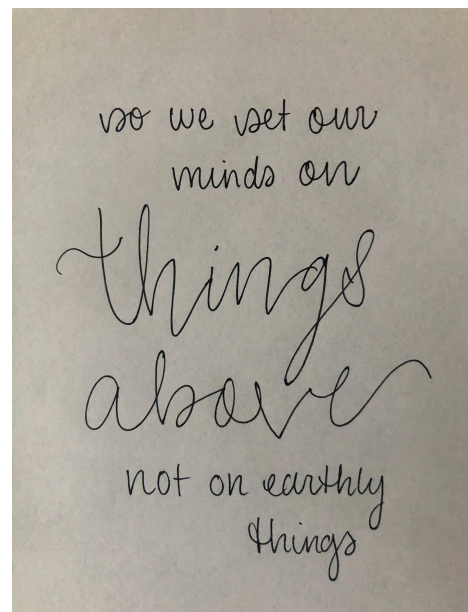 so we set our
minds on
things
above
not on earthly
things